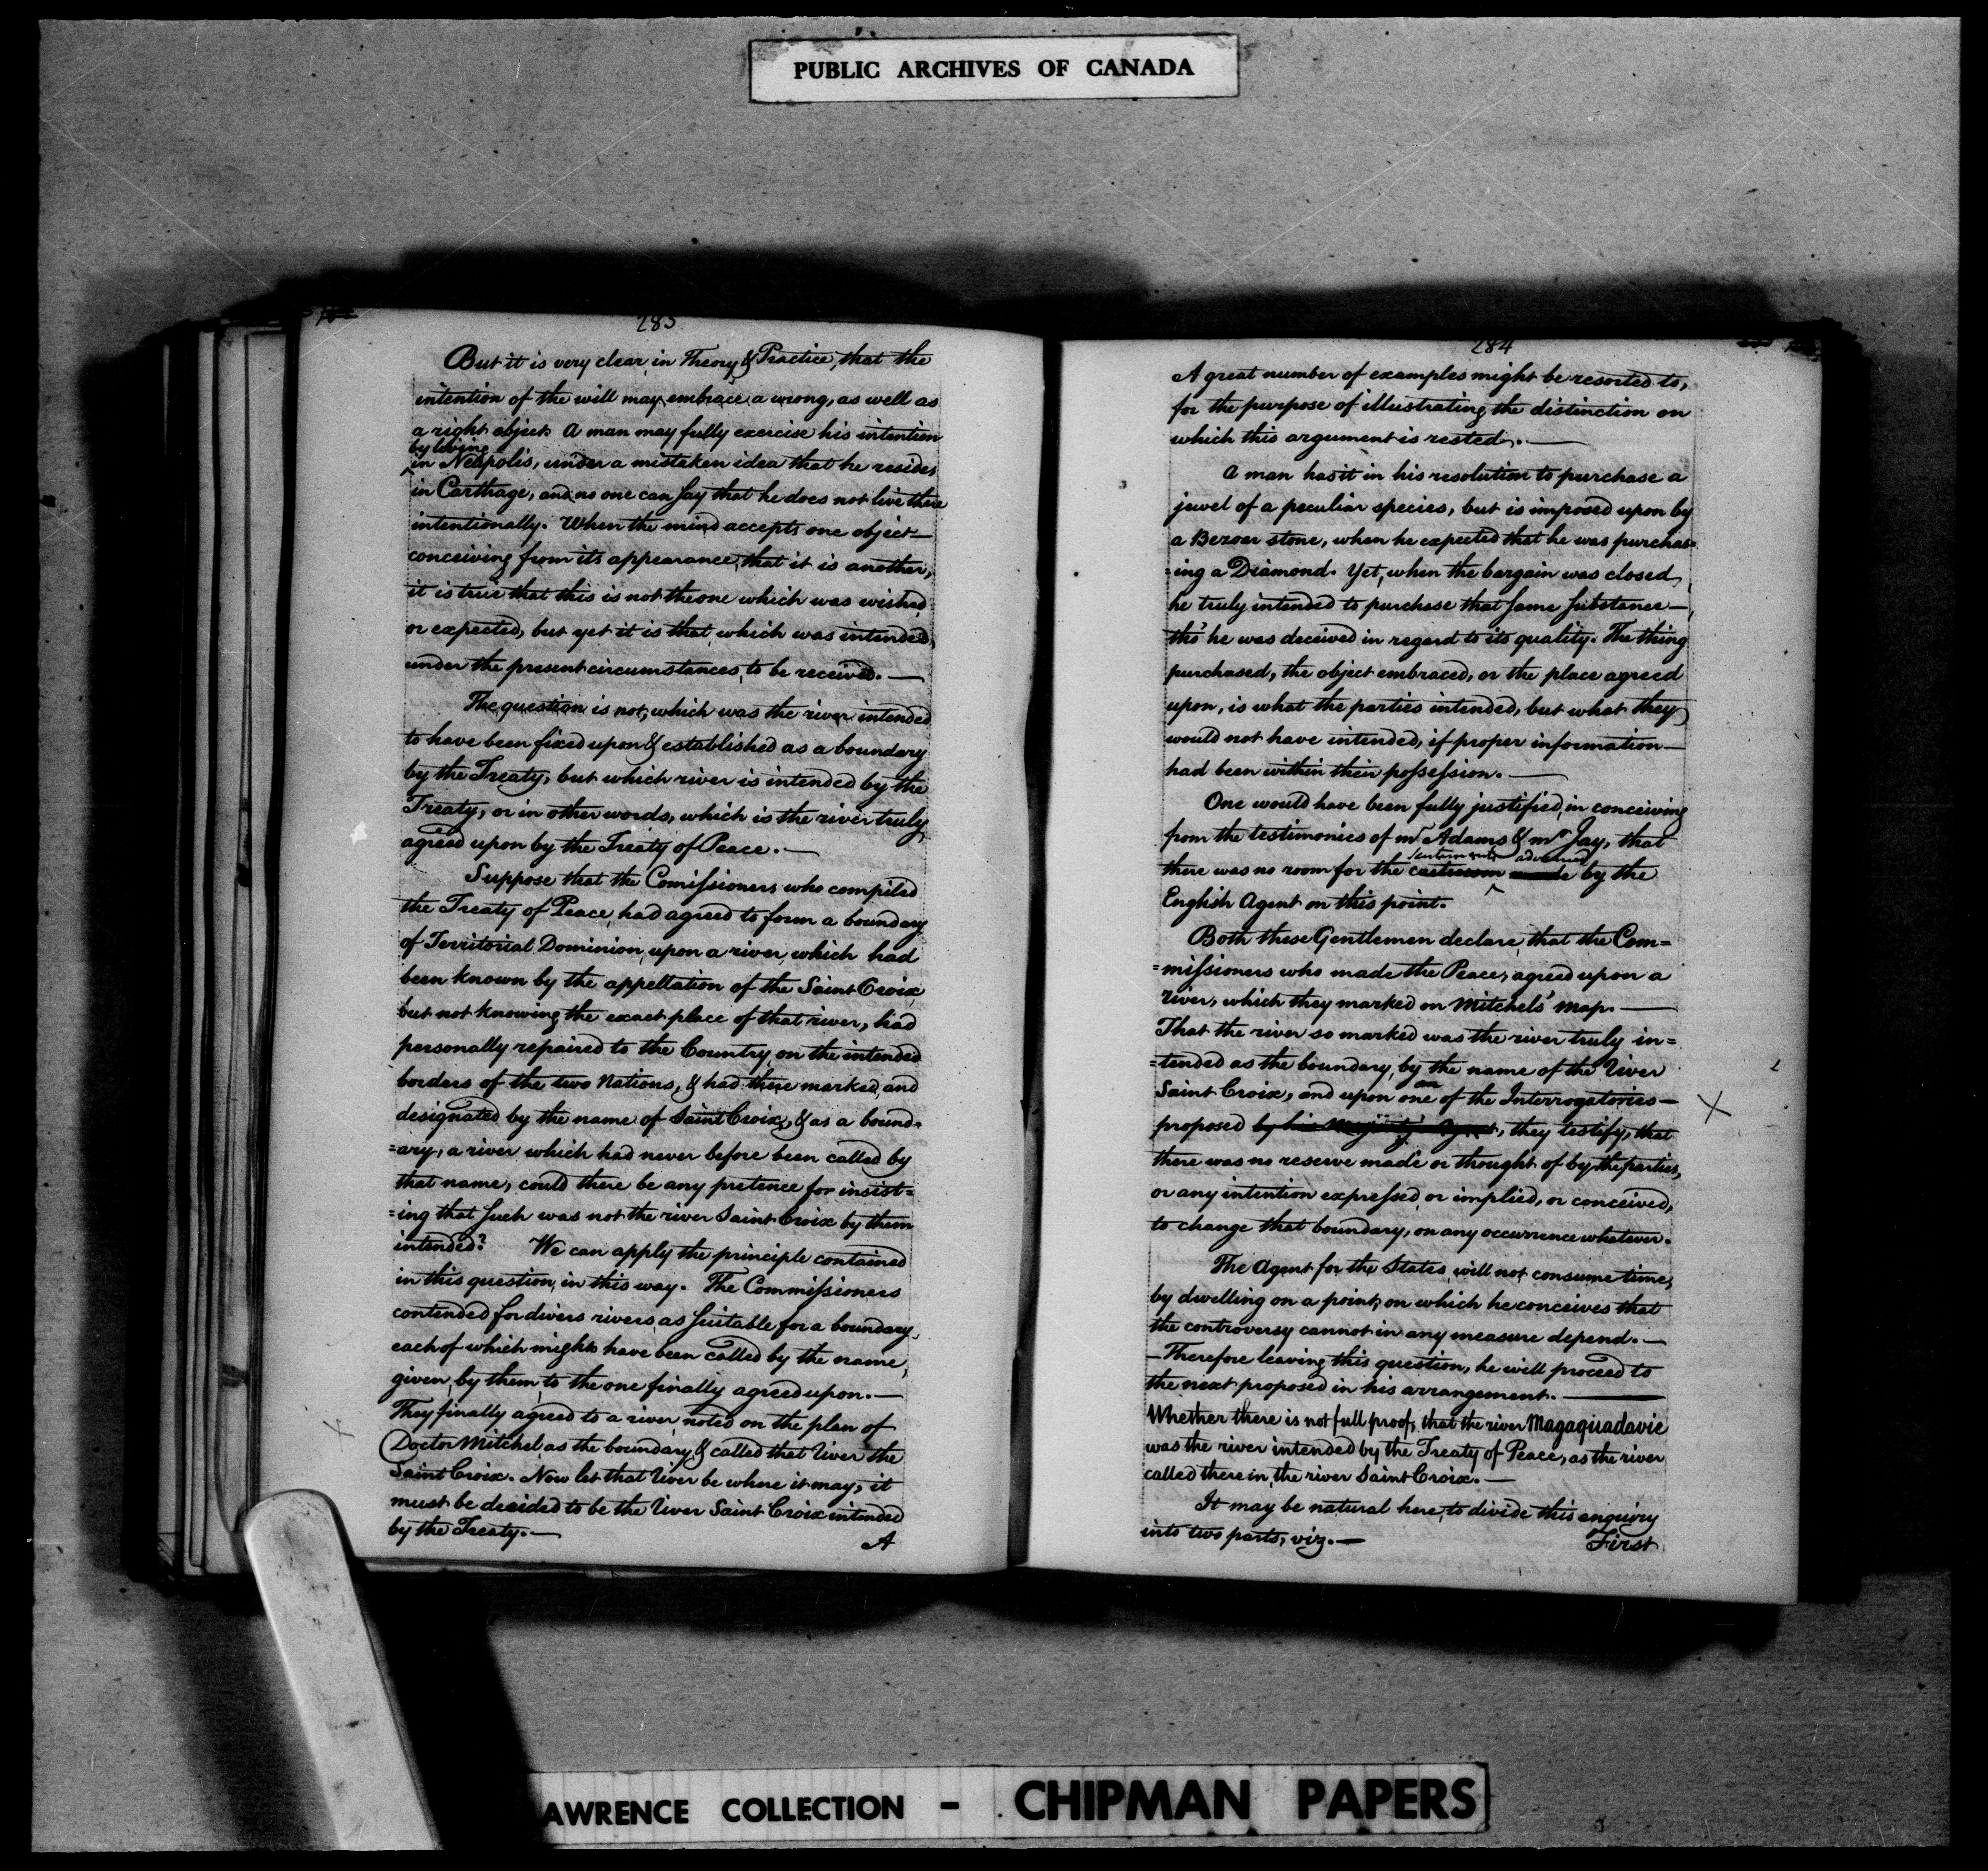 PUBLIC ARCHIVES OF CANADA
283
But it is very clear, in Theory & Practice, that the
intention of the will may embrace a wrong, as well as
a right object. A man may fully exercise his intention
by living
in Neapolis, under a mistaken idea that he resides
in Carthage, and no one can say that he does not live there
intentionally. When the mind accepts one object—
conceiving from its appearance, that it is another,
it is true that this is not the one which was wished
or expected, but yet it is that which was intended,
under the present circumstances, to be received.—
The question is not, which was the river intended
to have been fixed upon & established as a boundary
by the Treaty, but which river is intended by the
Treaty, or in other words, which is the river truly
agreed upon by the Treaty of Peace.—
Suppose that the Comissioners who compiled
the Treaty of Peace, had agreed to form a boundary
of Territorial Dominion, upon a river, which had
been known by the appellation of the Saint Croix
but not knowing the exact place of that river, had
personally repaired to the Country, on the intended
borders of the two Nations, & had there marked, and
designated by the name of Saint Croix, & as a bound=
=ary, a river which had never before been called by
that name, could there be any pretence for insist=
=ing that such was not the river Saint Croix by them
intended? We can apply the principle contained
in this question, in this way. The Commissioners
contended for divers rivers, as suitable for a boundary,
each of which might have been called by the name,
given by them, to the one finally agreed upon.—
They finally agreed to a river, noted on the plan of
Doctor Mitchel, as the boundary, & called that River the
Saint Croix. Now let that River be where it may, it
must be decided to be the River Saint Croix intended
by the Treaty.—
A
284
A great number of examples might be resorted to,
for the purpose of illustrating the distinction on
which this argument is rested.—
A man has it in his resolution to purchase a
jewel of a peculiar species, but is imposed upon by
a Bezoar stone, when he expected that he was purchas=
=ing a Diamond. Yet, when the bargain was closed,
he truly intended to purchase that same substance—,
tho' he was deceived in regard to its quality. The thing
purchased, the object embraced, or the place agreed
upon, is what the parties intended, but what they
would not have intended, if proper information—
had been within their possession.—
One would have been fully justified, in conceiving
from the testimonies of Mr Adams & Mr Jay, that
sentiments advanced
there was no room for the made by the
English Agent on this point.
Both these Gentlemen declare, that the Com=
=missioners who made the Peace, agreed upon a
river, which they marked on Mitchels' Map.—
That the river so marked was the river truly in=
=tended as the boundary, by the name of the River
an
Saint Croix, and upon one of the Interrogatories—
proposed by his Majesty's Agent, they testify, that
there was no reserve made or thought of by the parties,
or any intention expressed, or implied, or conceived,
to change that boundary, on any occurrence whatever.
The Agent for the States, will not consume time,
by dwelling on a point, on which he conceives that
the controversy cannot in any measure depend.—
—Therefore leaving this question, he will proceed to
the next proposed in his arrangement.—
Whether there is not full proof, that the river Magaguadavic
was the river intended by the Treaty of Peace, as the river
called therein, the river Saint Croix.—
It may be natural here, to divide this enquiry
into two parts, viz.—
First
AWRENCE COLLECTION - CHIPMAN PAPERS